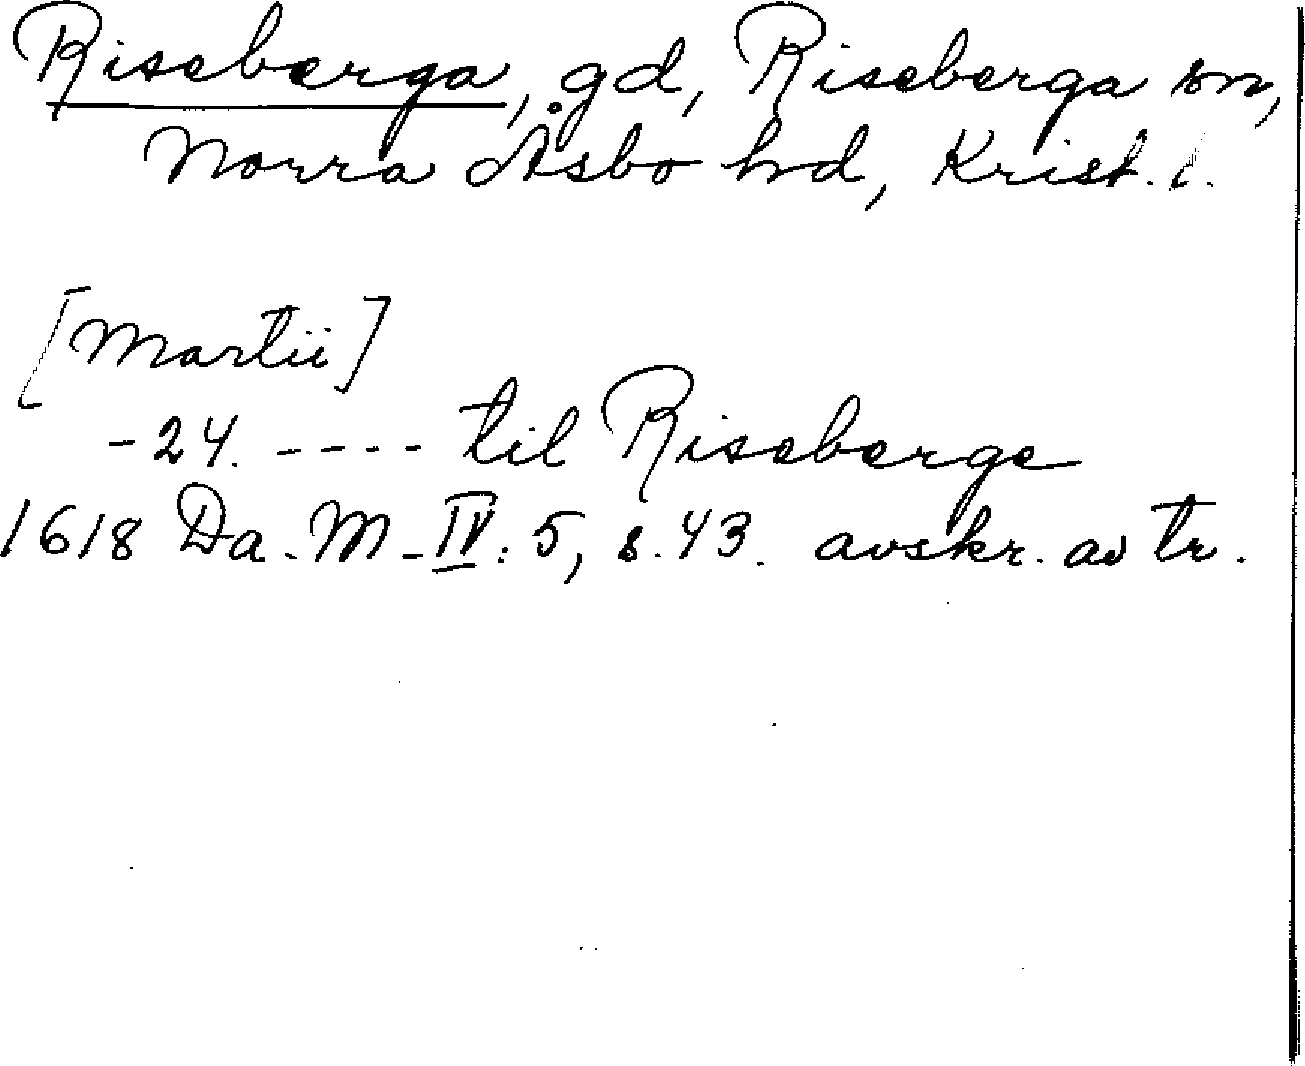 Riseberga, gd, Riseberga sn,
Norra Åsbo hd, Krist. l.
[Martii]
-24. ---- til Riseberge
1618 Da. M. IV: 5, s. 43. avskr. av tr.